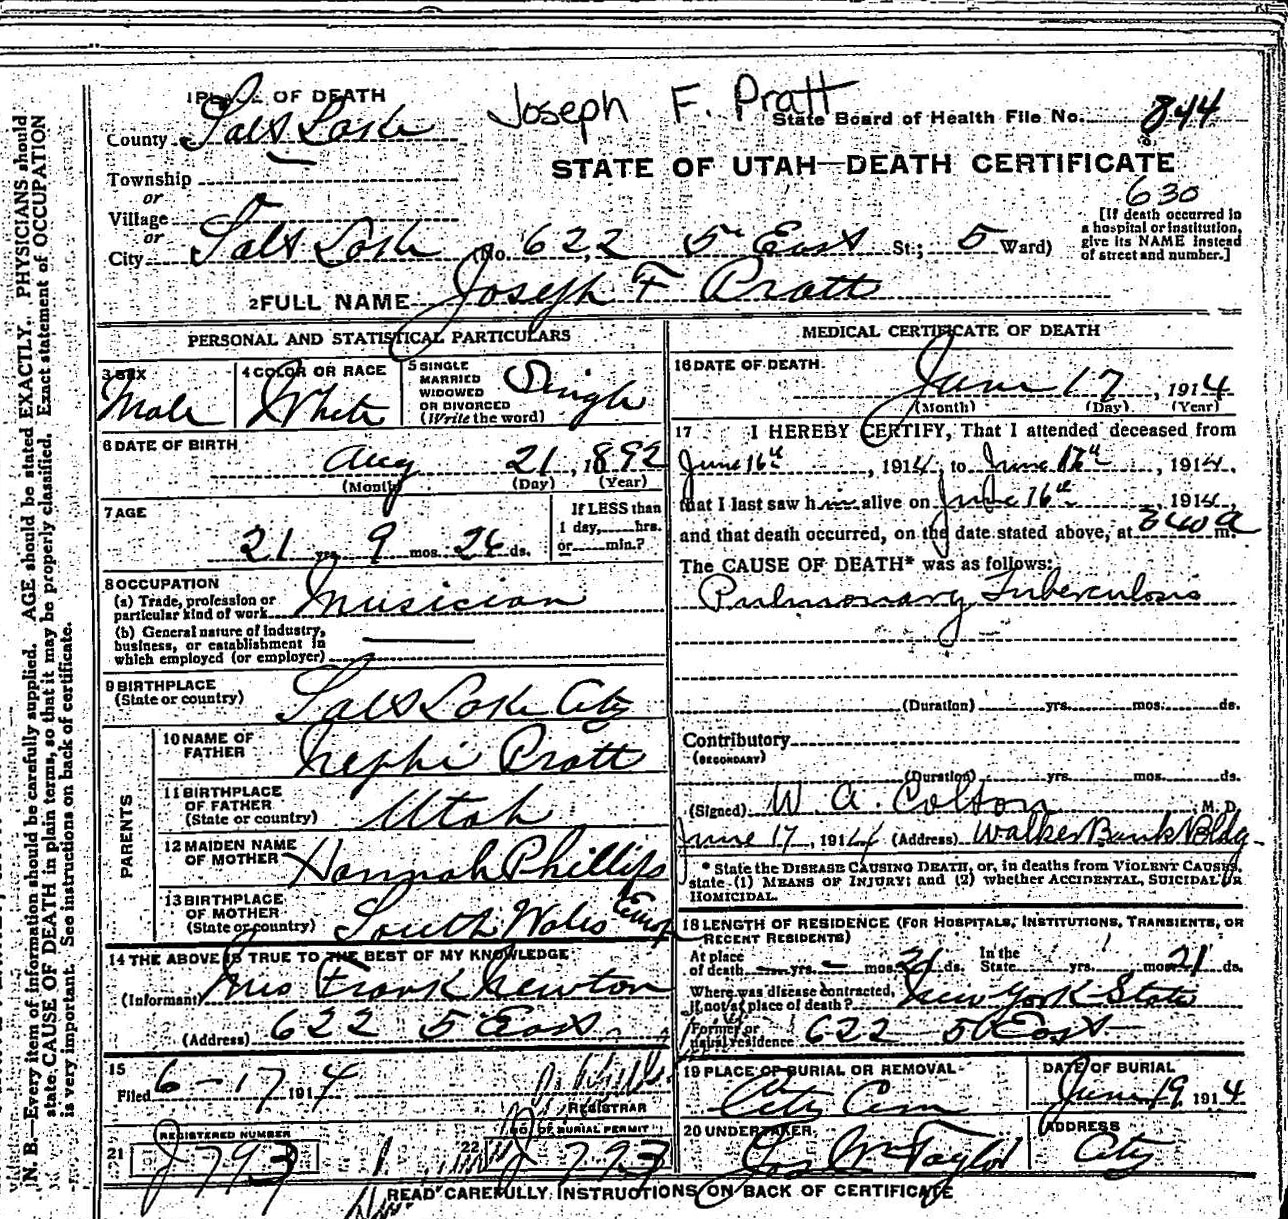 Joseph F. Pratt
1 PLACE OF DEATH
County Salt Lake
State Board of Health File No. 844
STATE OF UTAH—DEATH CERTIFICATE
Township
or
Village
or
City Salt Lake (No. 622 5" East St.; 5 Ward)
630
[If death occurred in
a hospital or institution,
give its NAME instead
of street and number.]
2 FULL NAME Joseph F Pratt
PERSONAL AND STATISTICAL PARTICULARS
3 SEX
Male
4 COLOR OR RACE
White
5 SINGLE
MARRIED
WIDOWED
OR DIVORCED
(Write the word)
Single
6 DATE OF BIRTH
Aug 21, 1892
(Month) (Day) (Year)
7 AGE
21 yrs. 9 mos. 26 ds.
If LESS than
1 day, hrs.
or min.?
8 OCCUPATION
(a) Trade, profession or
particular kind of work Musician
(b) General nature of industry,
business, or establishment in
which employed (or employer)
9 BIRTHPLACE
(State or country) Salt Lake City
PARENTS
10 NAME OF
FATHER Nephi Pratt
11 BIRTHPLACE
OF FATHER
(State or country) Utah
12 MAIDEN NAME
OF MOTHER Hannah Phillips
13 BIRTHPLACE
OF MOTHER
(State or country) South Wales
14 THE ABOVE IS TRUE TO THE BEST OF MY KNOWLEDGE
(Informant) Mrs Frank Newton
(Address) 622 5 East
15
Filed 6-17 1914
REGISTRAR
REGISTERED NUMBER
21 J 793
22 NO. OF BURIAL PERMIT
J 793
MEDICAL CERTIFICATE OF DEATH
16 DATE OF DEATH
June 17, 1914
(Month) (Day) (Year)
17 I HEREBY CERTIFY, That I attended deceased from
June 16th, 1914, to June 17th, 1914,
that I last saw him alive on June 16th, 1914,
and that death occurred, on the date stated above, at a m.
The CAUSE OF DEATH* was as follows:
Pulmonary Tuberculosis
(Duration) yrs. mos. ds.
Contributory
(SECONDARY)
(Duration) yrs. mos. ds.
(Signed) W. A. Colton M. D.
June 17, 1914 (Address) Walker Bank Bldg
* State the DISEASE CAUSING DEATH, or, in deaths from VIOLENT CAUSES,
state (1) MEANS OF INJURY; and (2) whether ACCIDENTAL, SUICIDAL OR
HOMICIDAL.
18 LENGTH OF RESIDENCE (FOR HOSPITALS, INSTITUTIONS, TRANSIENTS, OR
RECENT RESIDENTS)
At place
of death — yrs. — mos. 21 ds.
In the
State yrs. mos. 21 ds.
Where was disease contracted,
if not at place of death? New York State
Former or
usual residence 622 5th East
19 PLACE OF BURIAL OR REMOVAL
City Cem
DATE OF BURIAL
June 19 1914
20 UNDERTAKER
Jos Wm Taylor
ADDRESS
City
READ CAREFULLY INSTRUCTIONS ON BACK OF CERTIFICATE
N. B.—Every item of information should be carefully supplied. AGE should be stated EXACTLY. PHYSICIANS should
state CAUSE OF DEATH in plain terms, so that it may be properly classified. Exact statement of OCCUPATION
is very important. See instructions on back of certificate.